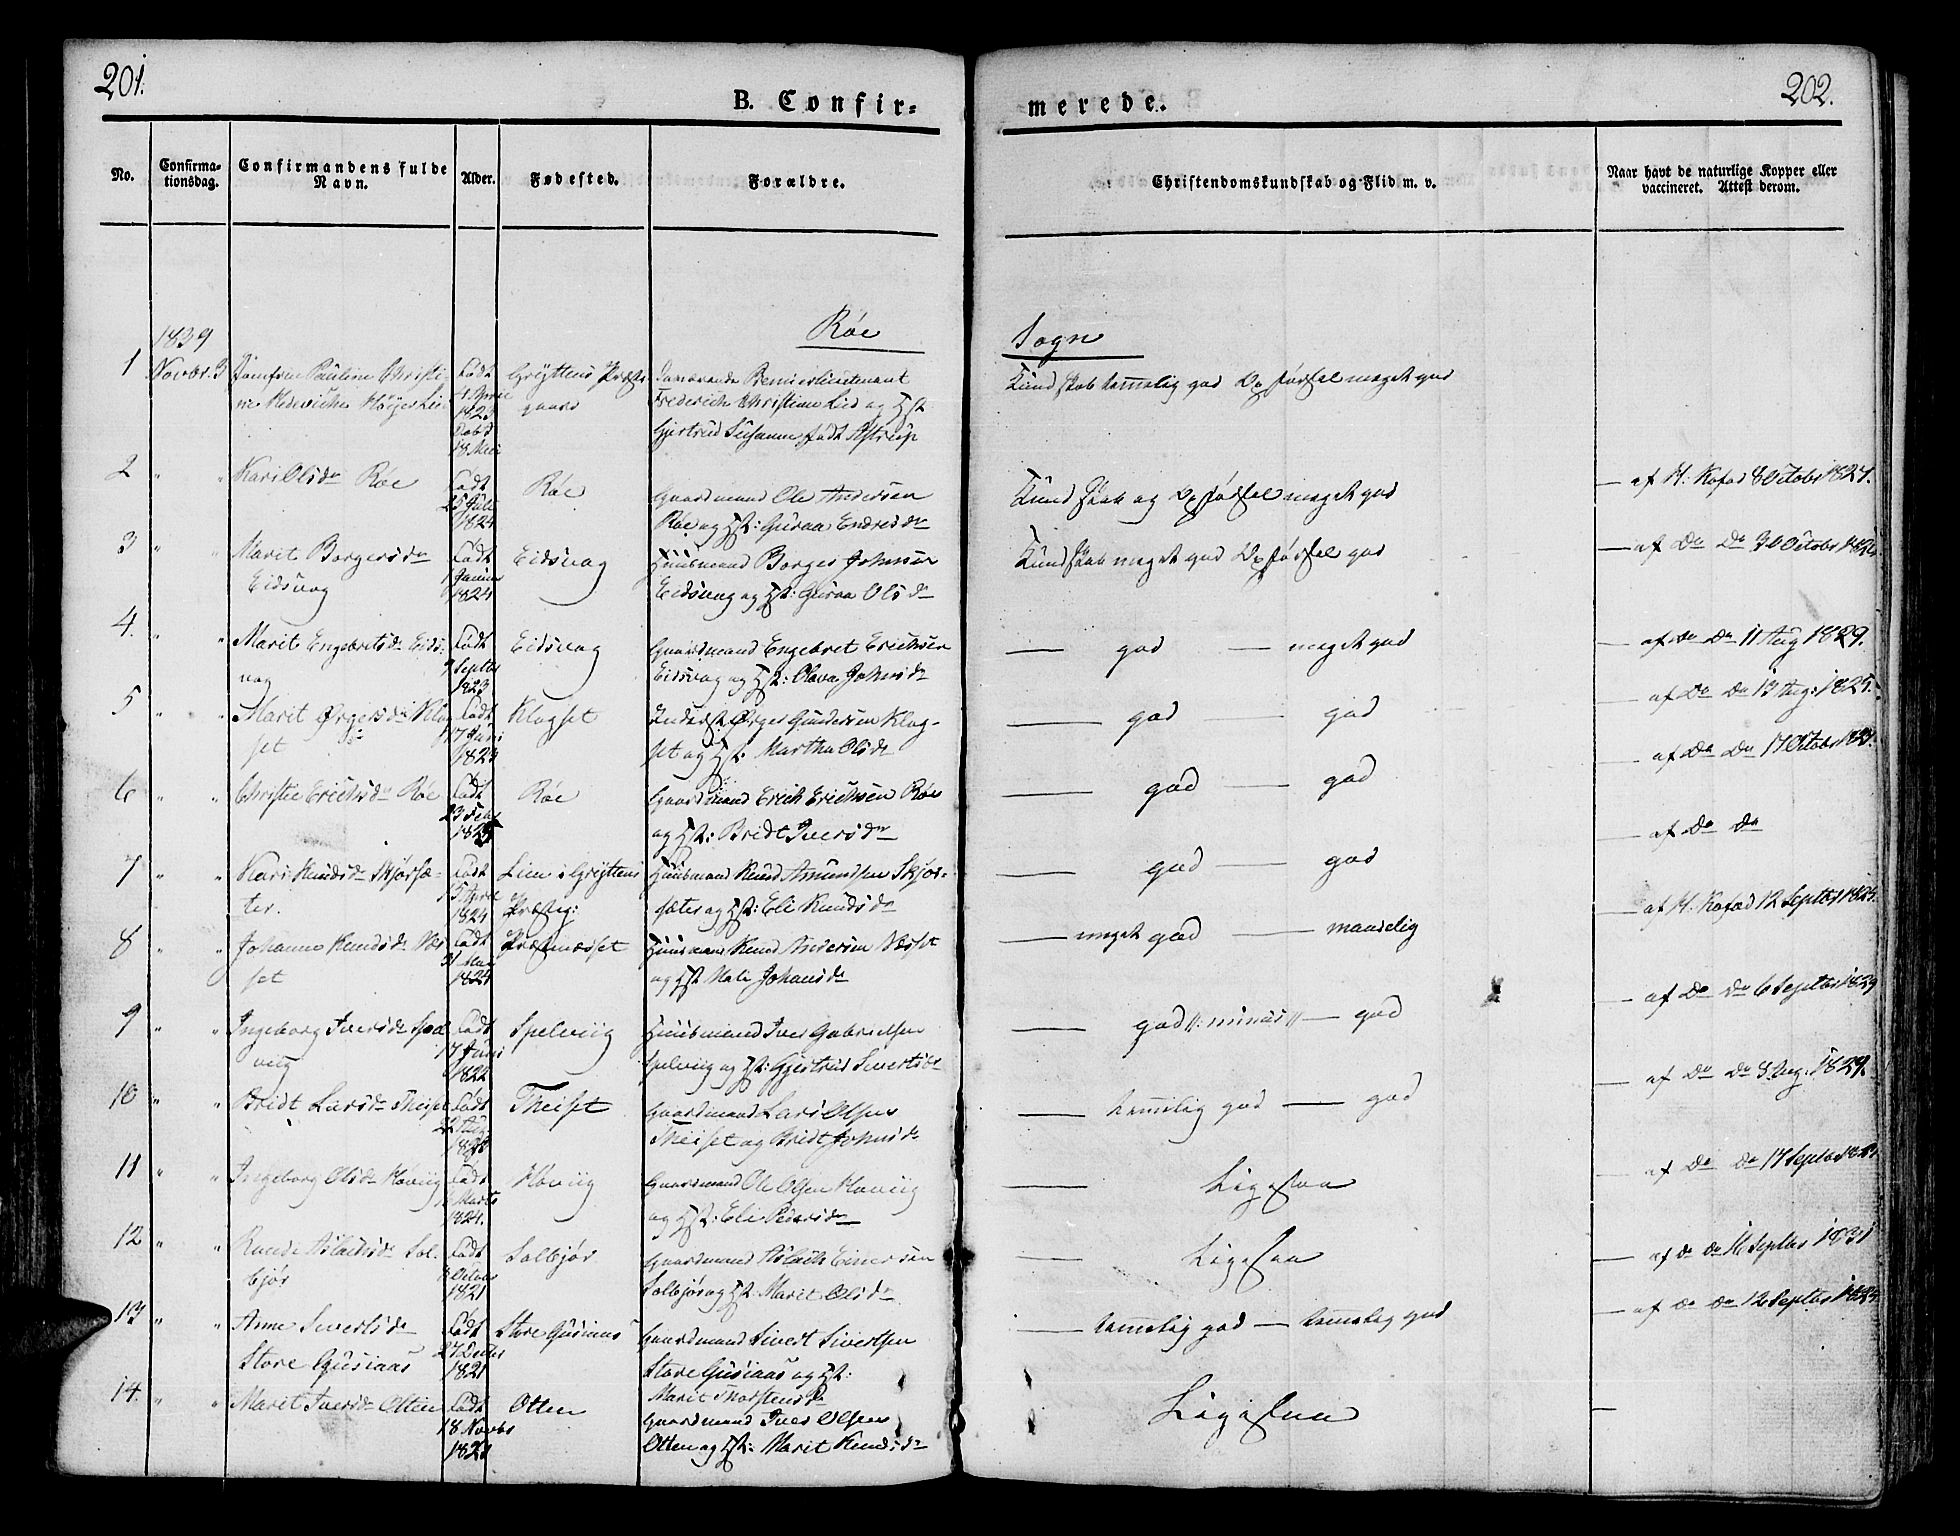 201.
B. Confir-
merede.
202.
No.
Confirma-
tionsdag.
Confirmandens fulde
Navn.
Alder.
Fødested.
Forældre.
Christendomskundskab og Flid m. v.
Naar havt de naturlige Kopper eller
vaccineret. Attest derom.
Røe
Sogn
1839
1 Novbr. 3 Jomfrue Pauline Christi-
ne Hedevicke
Født
4 April
1823
Døbt
18 Mai
Gryttens Præste
gaard
Premierlieutenant
Frederich Christian Lied og Hst
Gjertrud Susanne født Astrup
Kundskab temmelig god Opførsel meget god
2 " " Kari Olsdr Røe
Født
25 Juli
1824
Røe
Gaardmand Ole Andersen
Røe og Hst: Guraa Endresdr
Kundskab og Opførsel meget god
— af H: Kofod 8 Octobr 1827.
3 " " Marit Borgersdr
Eidsvag
Født
1824
Eidsvag
Huusmand Borger Johnsen
Eidsvag og Hst: Guraa Olsdr
Kundskab meget god Opførsel god
— af Do Do 30 Octobr
4. " " Marit Engebretsdr Eids-
vag
Født
Septbr
1823
Eidsvag
Gaardmand Engebret Erichsen
Eidsvag og Hst: Olava Johnsdr
— god — meget god
— af Do Do 11 Aug 1829.
5 " " Marit Ørgersdr Klog-
set
Født
17 Juni
1823
Klogset
Inderst Ørger Gundersen Klog-
set og Hst. Martha Olsdr
— god — god
— af Do Do 13 Aug: 1825.
6 " " Christie Erichsdr Røe
Født
23 Febr
Røe
Gaardmand Erich Erichsen Røe
og Hst: Bridt Iversdr
— god — god
— af Do Do 17 Octobr
7 " " Kari Knudsdr Skjørsæ-
ter.
Født
15 April
1824
Lien i Gryttens
Præsteg:
Huusmand Knud Amundsen Skjør-
sæter og Hst: Eli Knudsdr
— god — god
— af Do Do
8 " " Johanne Knudsdr Næs-
set
Født
31 Mai
1824
Præstnæsset
Huusmand Knud Andersen Næsset
og Hst Mali Johansdr
— meget god — maadelig
— af H: Kofod 12 Septbr
9 " " Ingeborg Iversdr Spel-
viig
Født
17 Juni
1822
Spelviig
Huusmand Iver Gabrielsen
Spelviig og Hst: Gjertrud Sivertsdr
— god //: minus // — god
— af Do Do 6 Septbr 1829
10 " " Bridt Larsdr Theiset
Født
Theiset
Gaardmand Lars Olsen
Theiset og Bridt Johnsdr
— temmelig god — god
— af Do Do 8 Aug: 1829.
11 " " Ingeborg Olsdr Hoviig
Født
Marts
1824.
Hoviig
Gaardmand Ole Olsen Hoviig
og Hst: Eli Pedersdr
— Ligesaa
— af Do Do 17 Septbr
12 " " Rande Aslachsdr Sol-
bjør
Født
Octobr
1821
Solbjør
Gaardmand Aslach Einersen
Solbjør og Hst: Marit Olsdr
— Ligesaa
— af Do Do 16 Septbr 1831
13 " " Anne Sivertsdr
Store Gusiaas
Født
27 Decbr
1821
Store Gusiaas
Gaardmand Sivert Sivertsen
Store Gusiaas og Hst:
Marit Thorstensdr
— temmelig god — temmelig god
— af Do Do 12 Septbr
14. " " Marit Iversdr Otten
Født
18 Novbr
Otten
Gaardmand Iver Olsen
Otten og Hst: Marit Knudsdr
Ligesaa
—